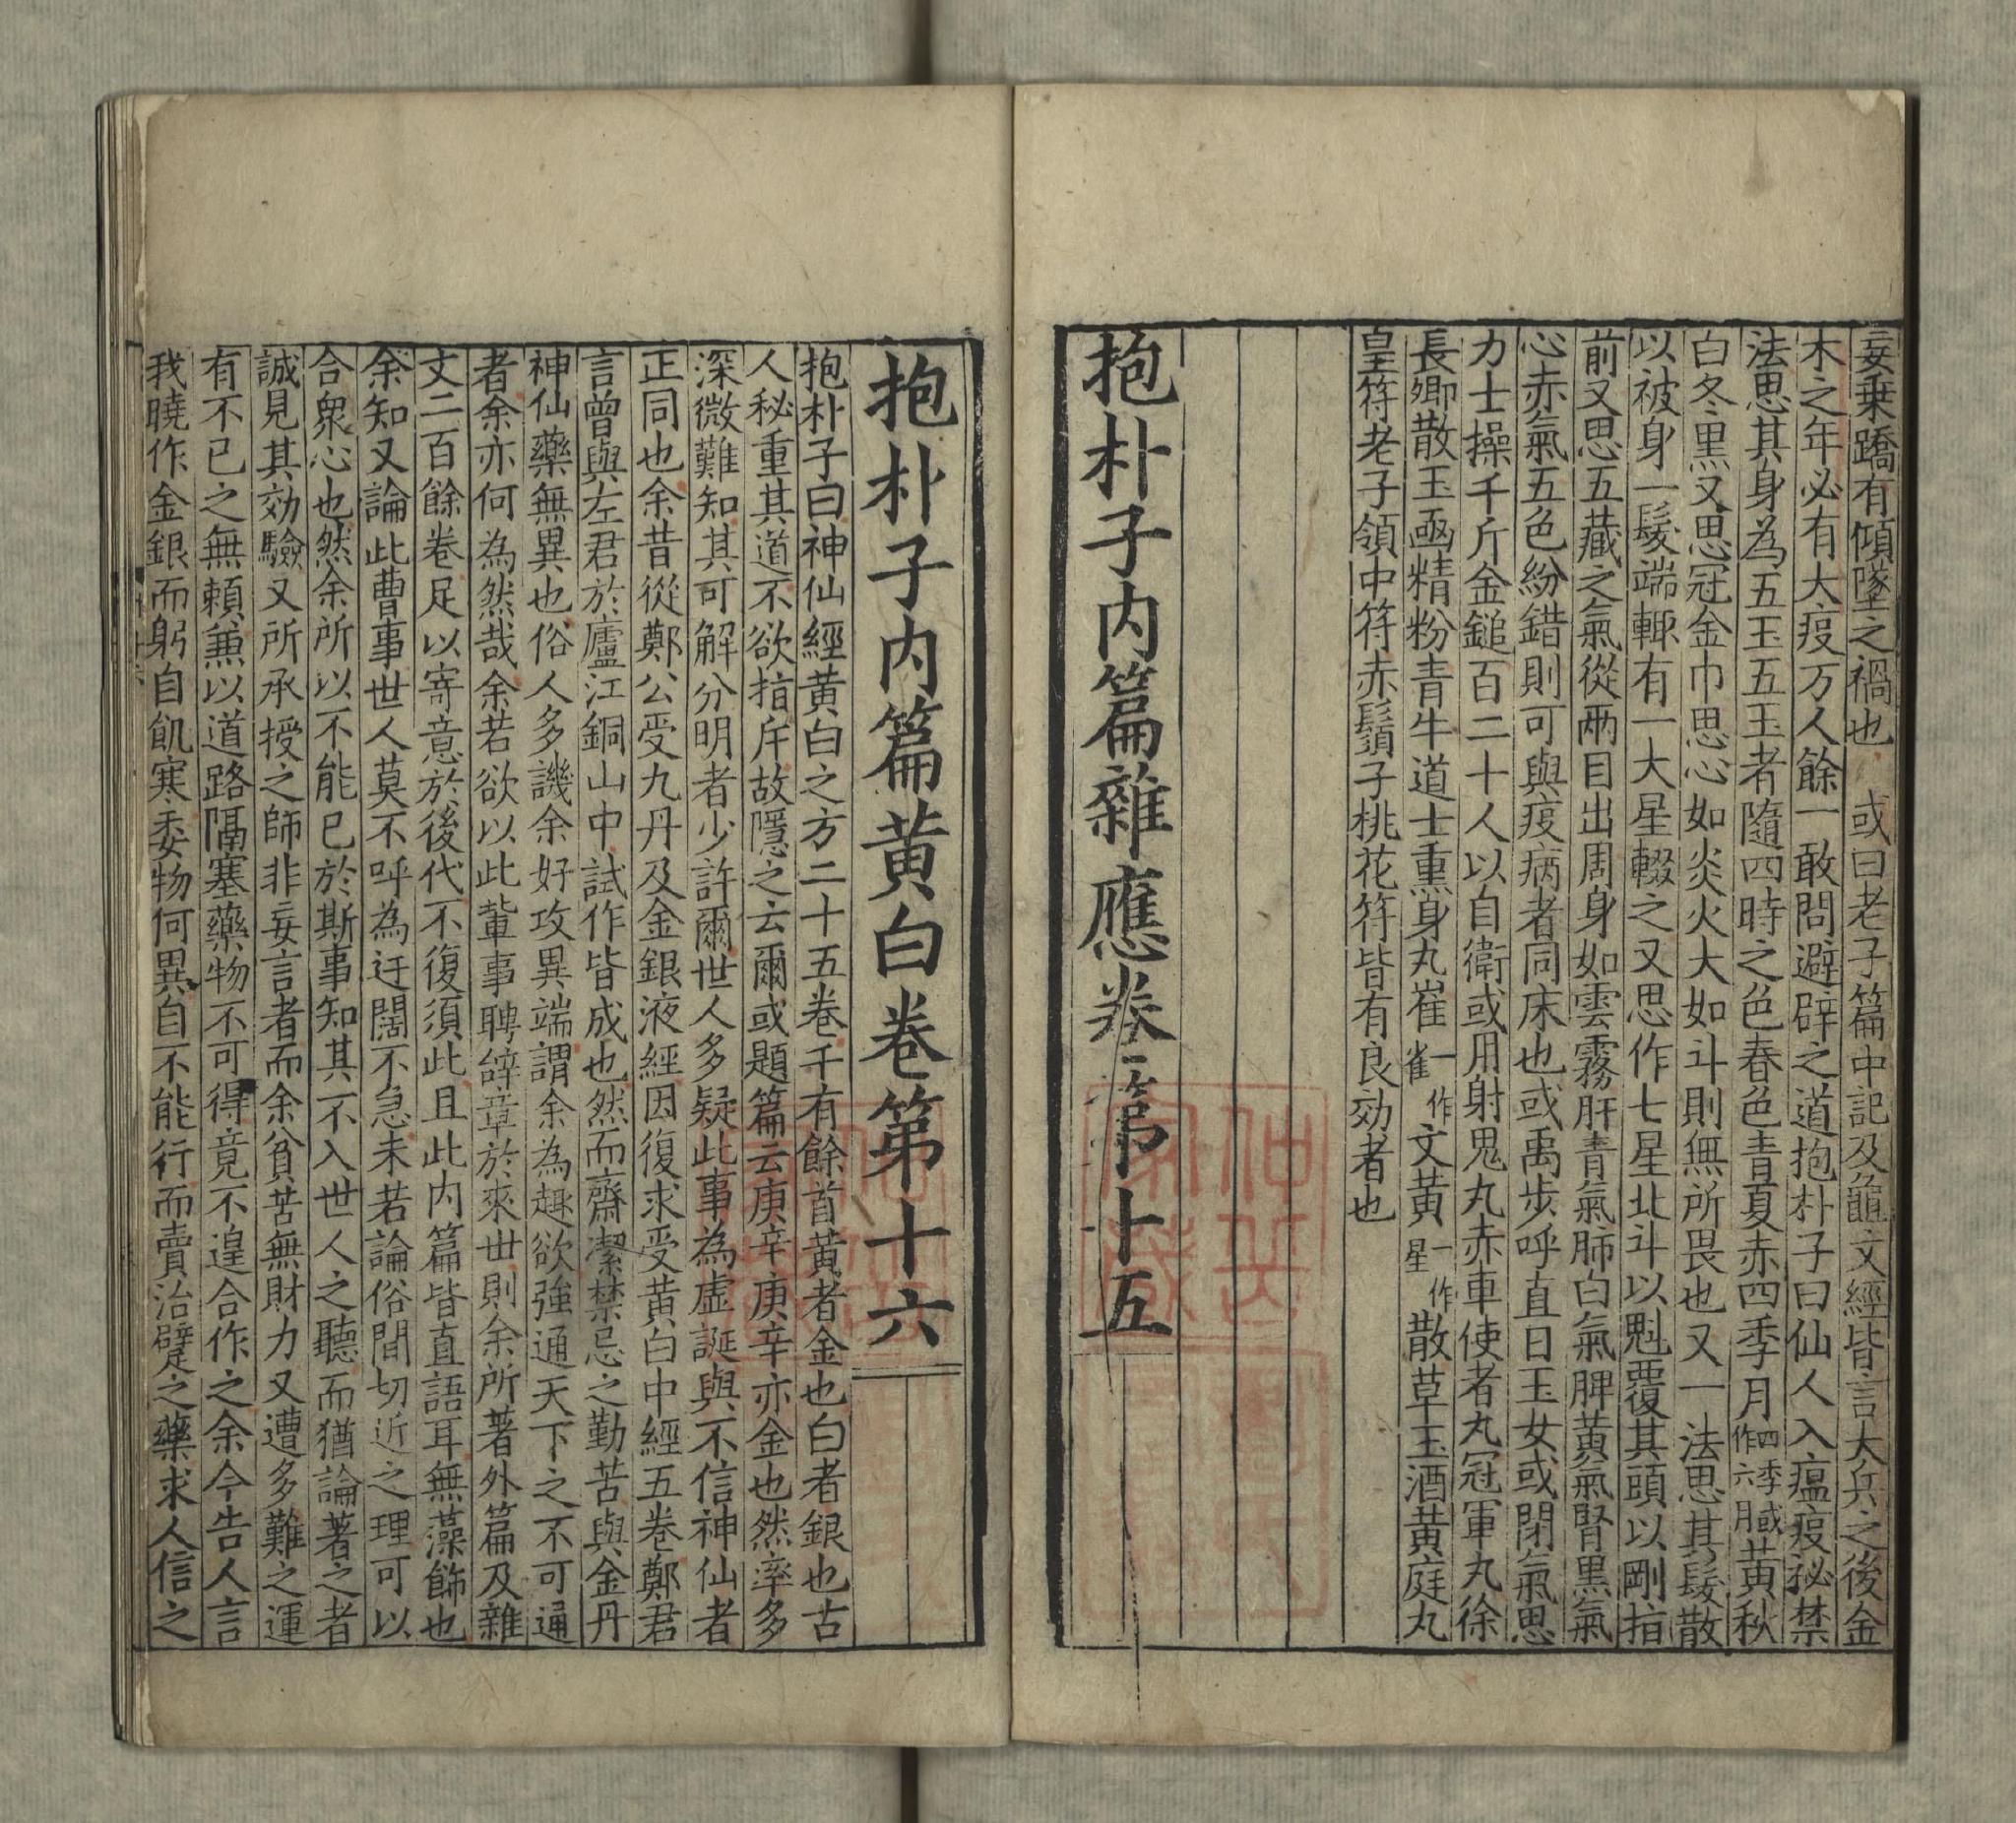 妄乗蹻有傾墜之禍也或曰老子篇中記及龜文經皆言大兵之後金
木之年必有大疫万人餘一敢問避辟之道抱朴子曰仙人入瘟疫祕禁
法思其身為五玉五玉者隨四時之色春色青夏赤四季月四季或作六月黄秋
白冬黒又思冠金巾思心如炎火大如斗則無所畏也又一法思其髮散
以被身一髮端輙有一大星輟之又思作七星北斗以魁覆其頭以剛指
前又思五藏之氣從兩目出周身如雲霧肝青氣肺白氣脾黄氣腎黒氣
心赤氣五色紛錯則可與疫病者同床也或禹步呼直日玉女或閉氣思
力士操千斤金鎚百二十人以自衛或用射鬼丸赤車使者丸冠軍丸徐
長卿散玉函精粉青牛道士熏身丸崔一作雀文黄一作星散草玉酒黄庭丸
皇符老子領中符赤鬚子桃花符皆有良効者也
抱朴子内篇雜應卷第十五
抱朴子内篇黄白卷第十六
抱朴子曰神仙經黄白之方二十五卷千有餘首黄者金也白者銀也古
人秘重其道不欲指斥故隱之云爾或題篇云庚辛庚辛亦金也然率多
深微難知其可解分明者少許爾世人多疑此事為虚誕與不信神仙者
正同也余昔從鄭公受九丹及金銀液經因復求受黄白中經五卷鄭君
言曽與左君於廬江銅山中試作皆成也然而齋潔禁忌之勤苦與金丹
神仙藥無異也俗人多譏余好攻異端謂余為趣欲強通天下之不可通
者余亦何為然哉余若欲以此軰事聘辭章於來世則余所著外篇及雜
文二百餘卷足以寄意於後代不復須此且此内篇皆直語耳無藻飾也
余知又論此曹事世人莫不呼為迂闊不急未若論俗間切近之理可以
合衆心也然余所以不能已於斯事知其不入世人之聽而猶論著之者
誠見其効驗又所承授之師非妄言者而余貧苦無財力又遭多難之運
有不已之無頼兼以道路隔塞藥物不可得竟不遑合作之余今告人言
我曉作金銀而躬自飢寒委物何異自不能行而賣治躄之藥求人信之